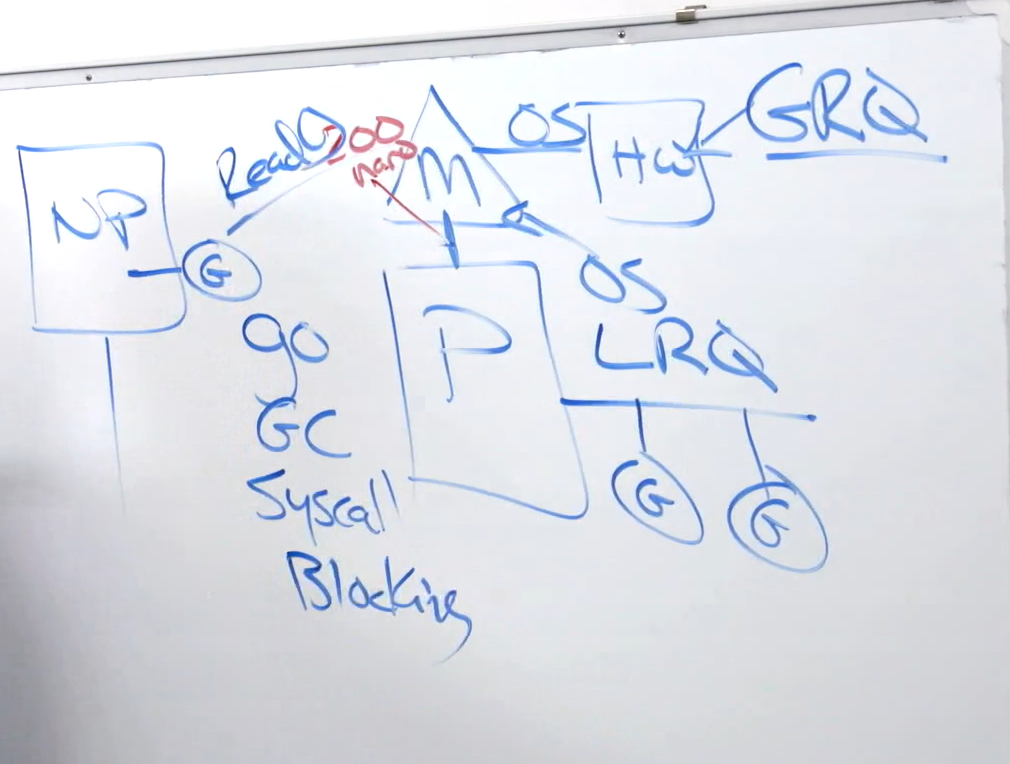 NP
G
Read()
200
nano
M
OS
HW
GRQ
OS
P
LRQ
G
G
go
GC
Syscall
Blocking